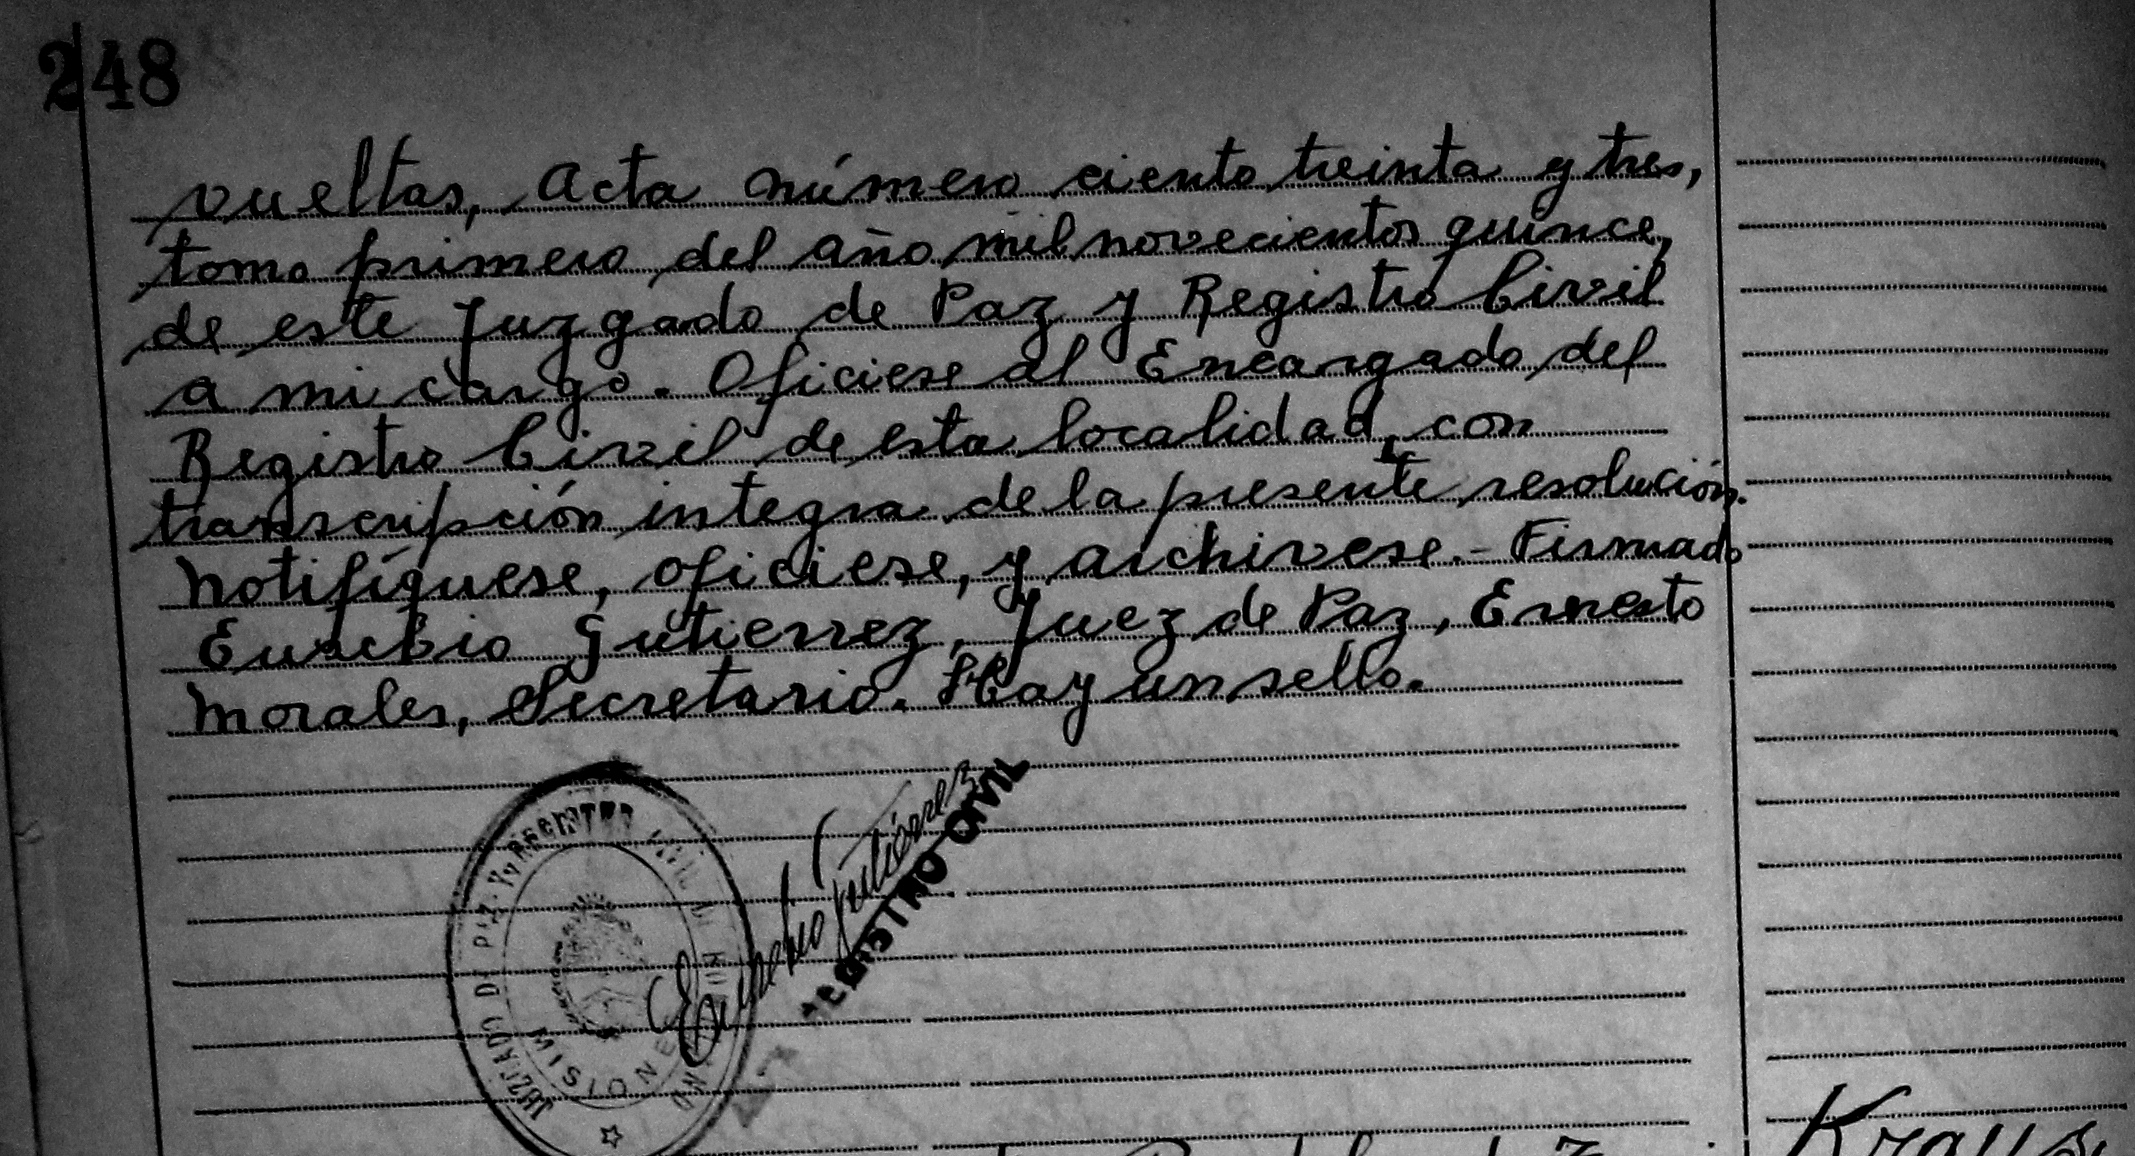 248
vueltas, Acta número ciento treinta y tres,
tomo primero del año mil novecientos quince,
de este Juzgado de Paz y Registro Civil
a mi cargo. Oficiese al Encargado del
Registro Civil de esta localidad, con
transcripción integra de la presente resolución.
Notifíquese, oficiese, y archivese.- Firmado
Eusebio Gutierrez, Juez de Paz, Ernesto
Morales, Secretario. Hay un sello.
JUZGADO DE PAZ Y REGISTRO CIVIL
MISIONES
Eusebio Gutiérrez
REGISTRO CIVIL